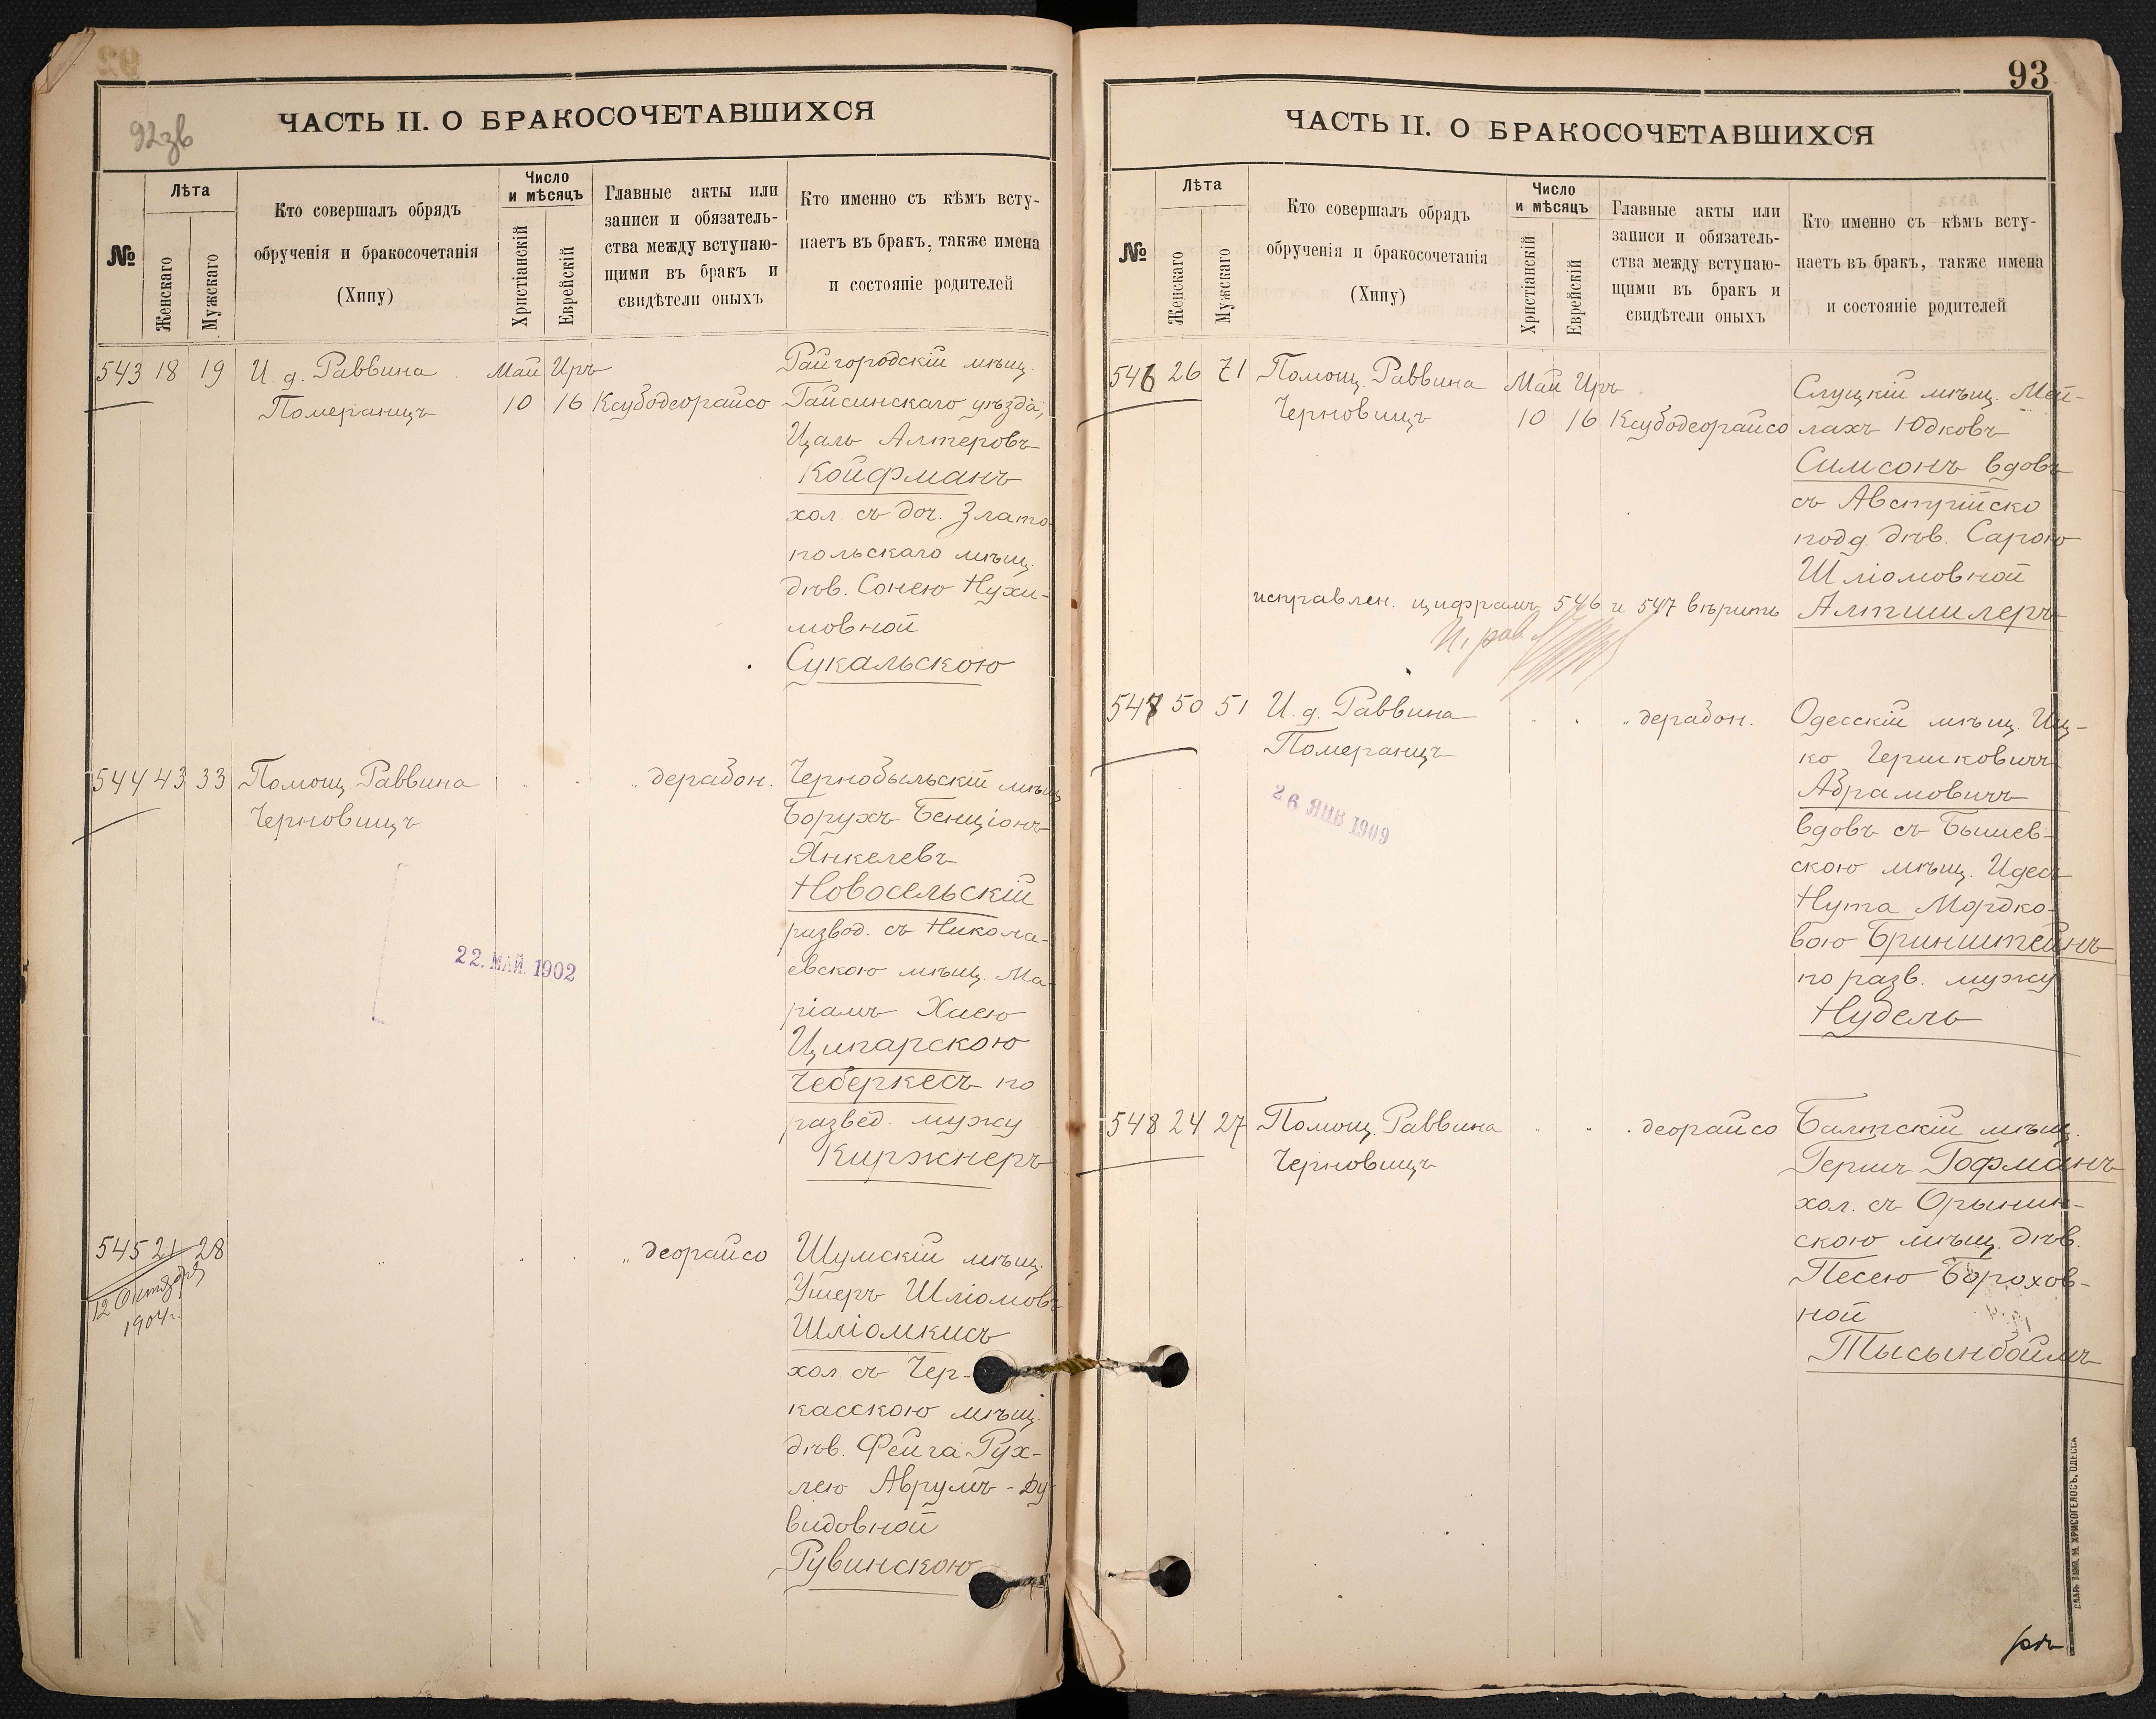 92зв
ЧАСТЬ II. О БРАКОСОЧЕТАВШИХСЯ
№
Лѣта
Женскаго
Мужскаго
Кто совершалъ обрядъ
обрученія и бракосочетанія
(Хипу)
Число
и мѣсяцъ
Христіанскій
Еврейскій
Главные акты или
записи и обязатель-
ства между вступаю-
щими въ бракъ и
свидѣтели оныхъ
Кто именно съ кѣмъ всту-
паетъ въ бракъ, также имена
и состояніе родителей
543 18 19 И. д. Раввина Май Иръ Райгородскій мѣщ.
Померанцъ 10 16 Ксубодеорайсо Гайсинскаго уѣзда,
Цаль Алтеровъ
Койфманъ
хол. съ доч. Злато-
польскаго мѣщ.
дѣв. Сонею Нухи-
мовной
Сукальскою
544 43 33 Помощ. Раввина " " " дерабон. Чернобыльскій мѣщ.
Черновицъ Борухъ Бенціонъ
Янкелевъ
Новосельскій
развод. съ Никола-
22. МАЙ. 1902
евскою мѣщ. Ма-
ріамъ Хаею
Ципарскою
Чеберкесъ по
развед. мужу
Киржнеръ
545 21 28 " " " " деорайсо Шумскій мѣщ.
12 Октября
1904г.
Ушеръ Шліомовъ
Шліомкисъ
хол. съ Чер-
касскою мѣщ.
дѣв. Фейга Рух-
лею Аврумъ-Ду-
видовной
Рувинскою
93
ЧАСТЬ II. О БРАКОСОЧЕТАВШИХСЯ
№
Лѣта
Женскаго
Мужскаго
Кто совершалъ обрядъ
обрученія и бракосочетанія
(Хипу)
Число
и мѣсяцъ
Христіанскій
Еврейскій
Главные акты или
записи и обязатель-
ства между вступаю-
щими въ бракъ и
свидѣтели оныхъ
Кто именно съ кѣмъ всту-
паетъ въ бракъ, также имена
и состояніе родителей
546 26 71 Помощ. Раввина Май Иръ Слуцкій мѣщ. Мей-
Черновицъ 10 16 Ксубодеорайсо лахъ Юдковъ
Симсонъ вдовъ
съ Австрійско
подд. дѣв. Сарою
Шліомовной
исправлен. цифрамъ 546 и 547 вѣрить Алтшилеръ
И. рав.
547 50 51 И. д. Раввина " " " дерабон. Одесскій мѣщ. Иц-
Померанцъ ко Гершковичъ
Абрамовичъ
26 ЯНВ 1909
вдовъ съ Бышев-
скою мѣщ. Идесъ
Нута Мордко-
вою Бринштейнъ
по разв. мужу
Нудель
548 24 27 Помощ. Раввина " " " деорайсо Балтскій мѣщ.
Черновицъ Гершъ Гофманъ
хол. съ Орынин-
скою мѣщ. дѣв.
Песею Борохов-
ной
Тысынбоймъ
СЛАВ. ТИП. Н. ХРИСОГЕЛОСЪ, ОДЕССА